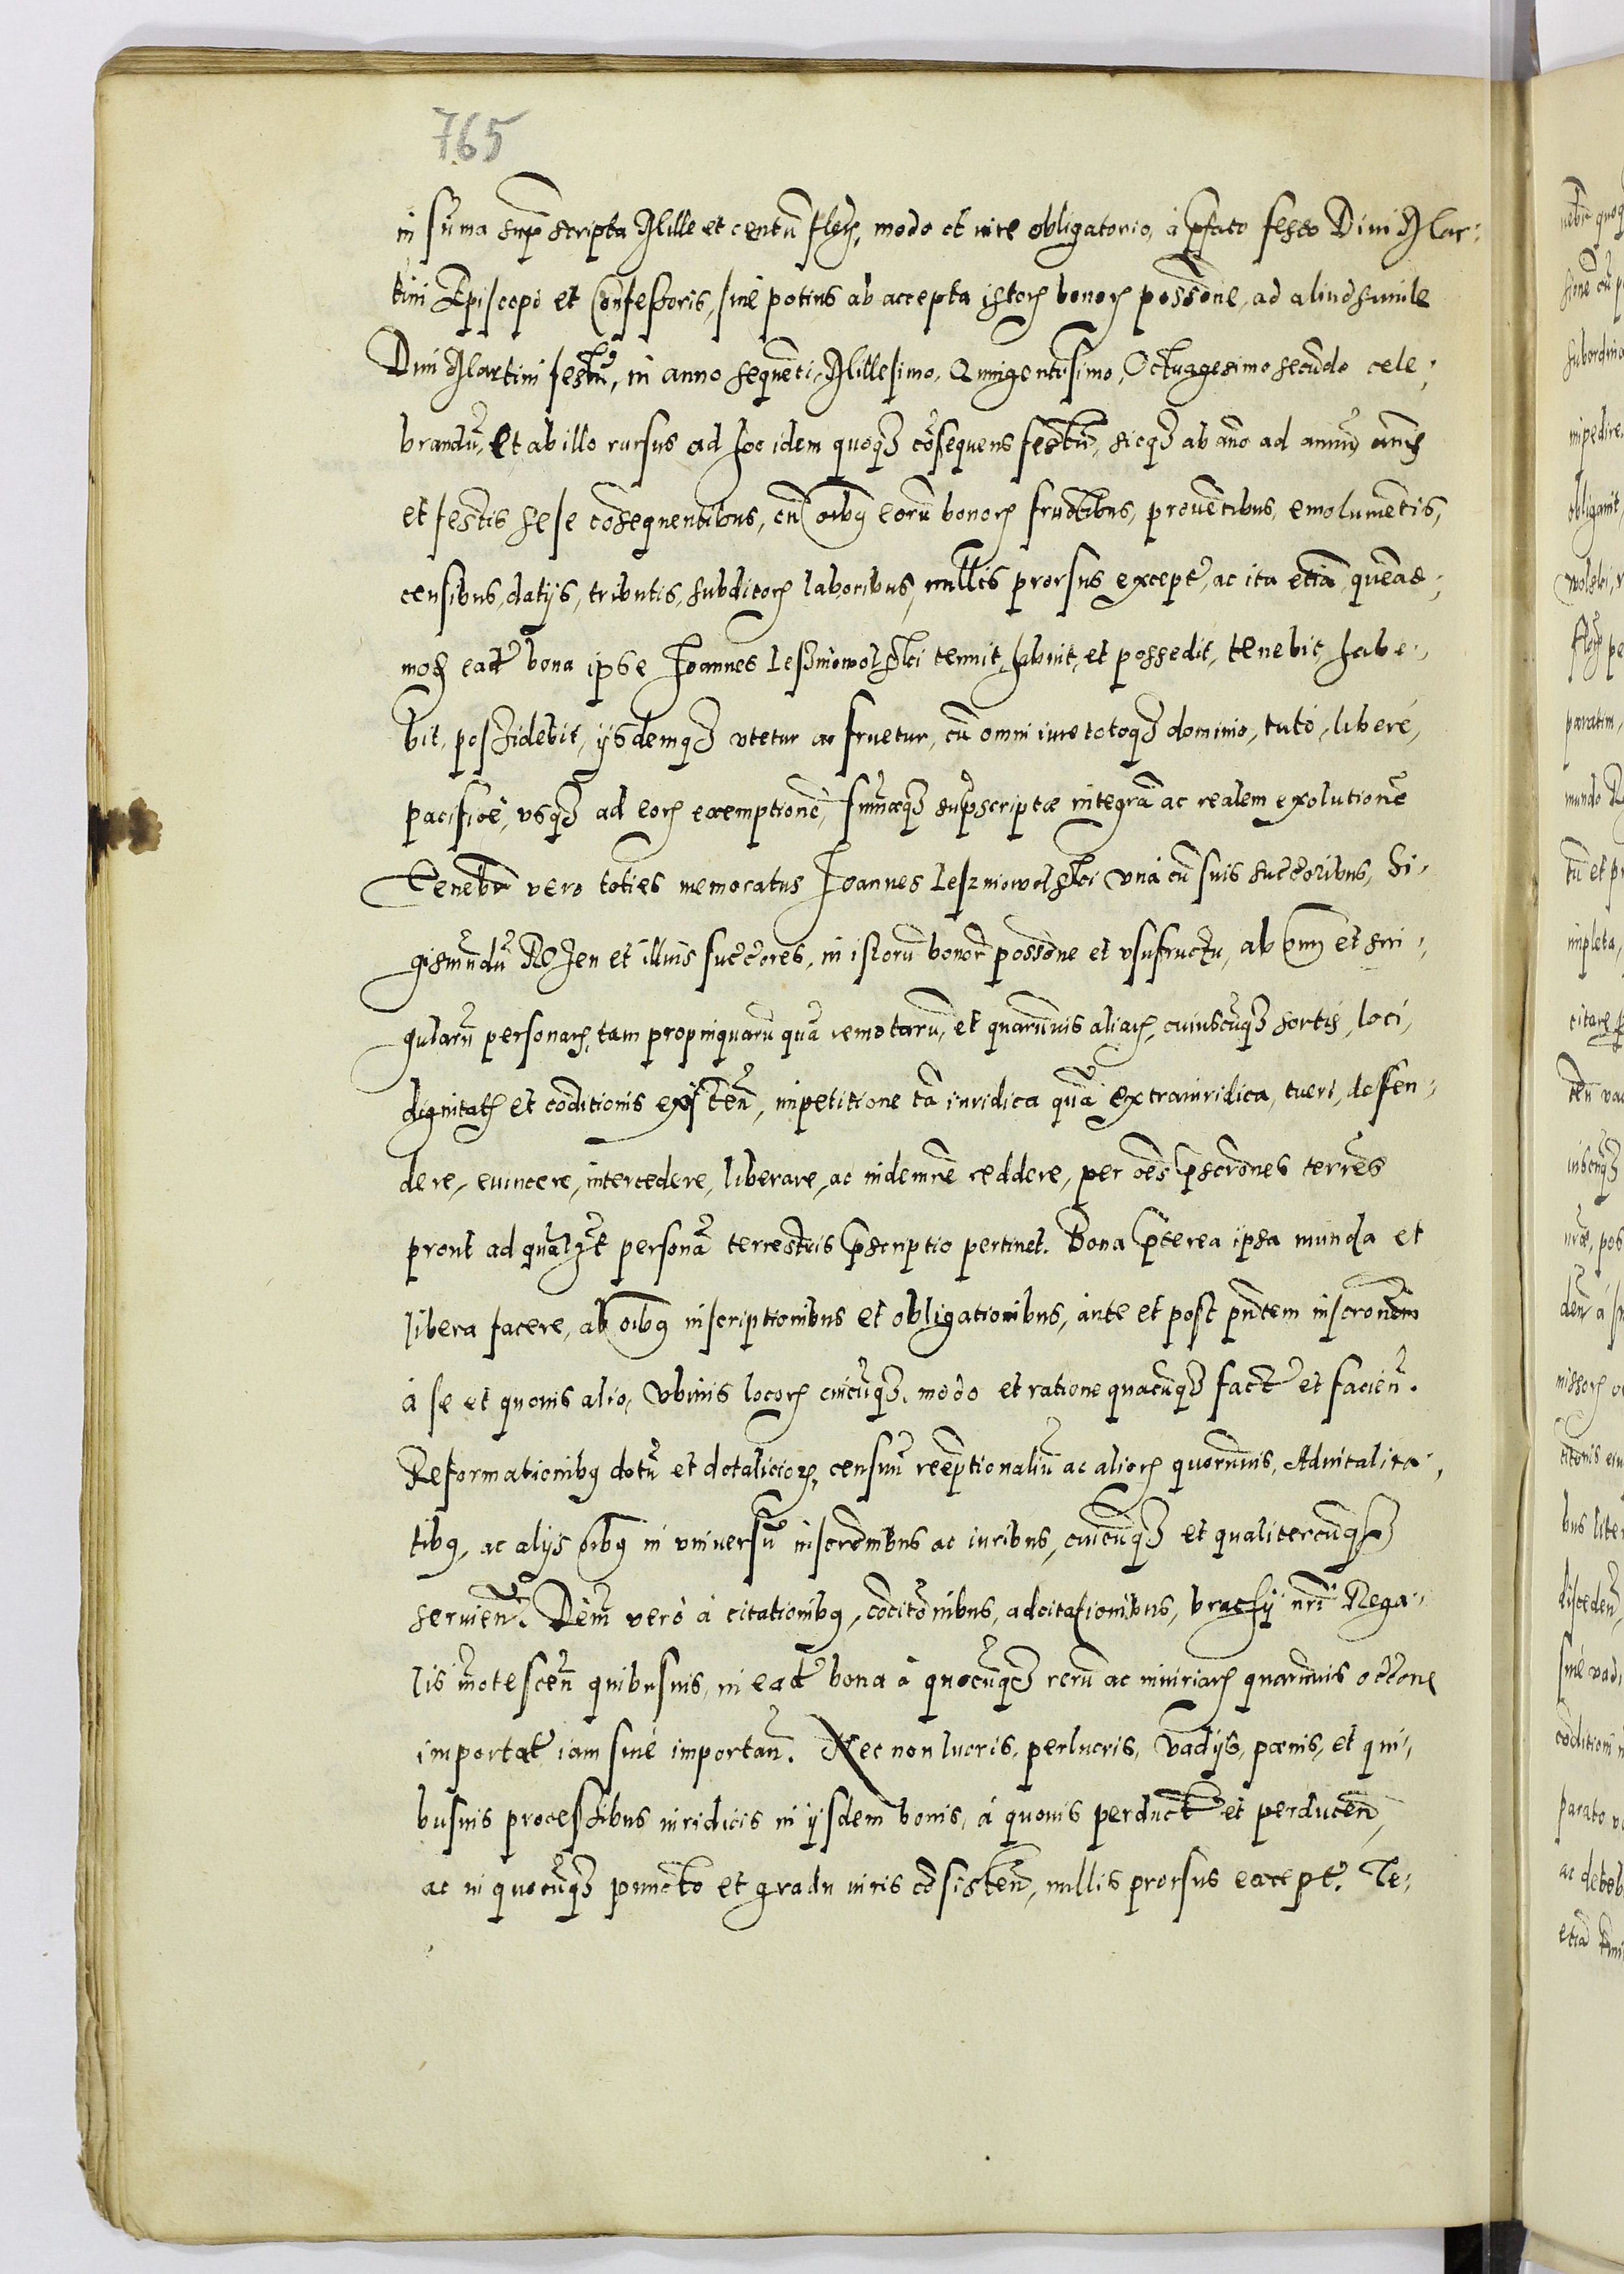 765
in sūma suprascripta Mille et centū floꝝ, modo et iure obligatorio, à p̄fato festo Diui Mar:
tini Episcopi et Confessoris, siue potius ab accepta istoꝝ bonoꝝ possōne, ad aliud simile
Diui Martini festū, in anno sequēti, Millesimo, Quingentēsimo, Octuagesimo secūdo cele:
brandū, Et ab illo rursus ad hoc idem quoqꝫ cōsequens festū, sicqꝫ ab āno ad annū, annis
et festis sese cōsequentibus, cū oībus eorū bonoꝝ fructibus, prouētibus, emolumētis,
censibus, datijs, tributis, subditoꝝ laboribus, nullis prorsus except, ac ita etiā quēad:
mod eadē bona ipse Joannes Leszniowolski tenuit, habuit, et possedit, tenebit, habe:
bit, possidebit, ijsdemqꝫ vtetur ac fruetur, cū omni iure totoqꝫ dominio, tutò, liberè,
pacificè, vsqꝫ ad eoꝝ exemptionē, sūmæqꝫ suprascriptæ integrā ac realem exolutionē
Tenebr vero toties memoratus Joannes Leszniowolski vnà cū suis succōribus, Si:
gismūdū Rejen et illius succōres, in istorū bonor possōne et vsufructu, ab oīm et sin:
gularū personaꝝ, tam propinquarū quā remotarū, et quarūuis aliaꝝ, cuiuscūqꝫ sortis, loci,
dignitat et cōditionis existen, impetitione tā iuridica quā extraiuridica, tueri, defen:
dere, euincere, intercedere, liberare, ac indemnē reddere, per oēs p̄scrōnes terrēs
prout ad qualꝫt personā terrestris p̄scriptio pertinet. Bona p̄terea ipsa munda et
libera facere, ab oībus inscriptionibus et obligationibus, ante et post pn̄tem inscrōnem
à se et quouis alio, vbiuis locoꝝ cuicūqꝫ, modo et ratione quacūqꝫ fact et facien.
Reformationibꝰ dotū et dotalicioꝝ, censuū reemptionaliū ac alioꝝ quorumuis, Aduitalita:
tibꝰ, ac alijs oībꝰ in vniuersū inscrōnibus ac iuribus, cuicūqꝫ et qualitercūqꝫ
seruien. Dem verò à citationibꝰ, cōcitōnibus, adcitationibus, brachij nrī Rega:
lis īnotescen quibusuis, in eadē bona à quocūqꝫ rerū ac iniuriaꝝ quarūuis occōne
importat iam siue importan. Nec non lucris, perlucris, vadijs, pœnis, et qui:
busuis processibus iuridicis in ijsdem bonis, à quouis perduct et perducen,
ac in quocūqꝫ puncto et gradu iuris cōsisten, nullis prorsus except. Te: